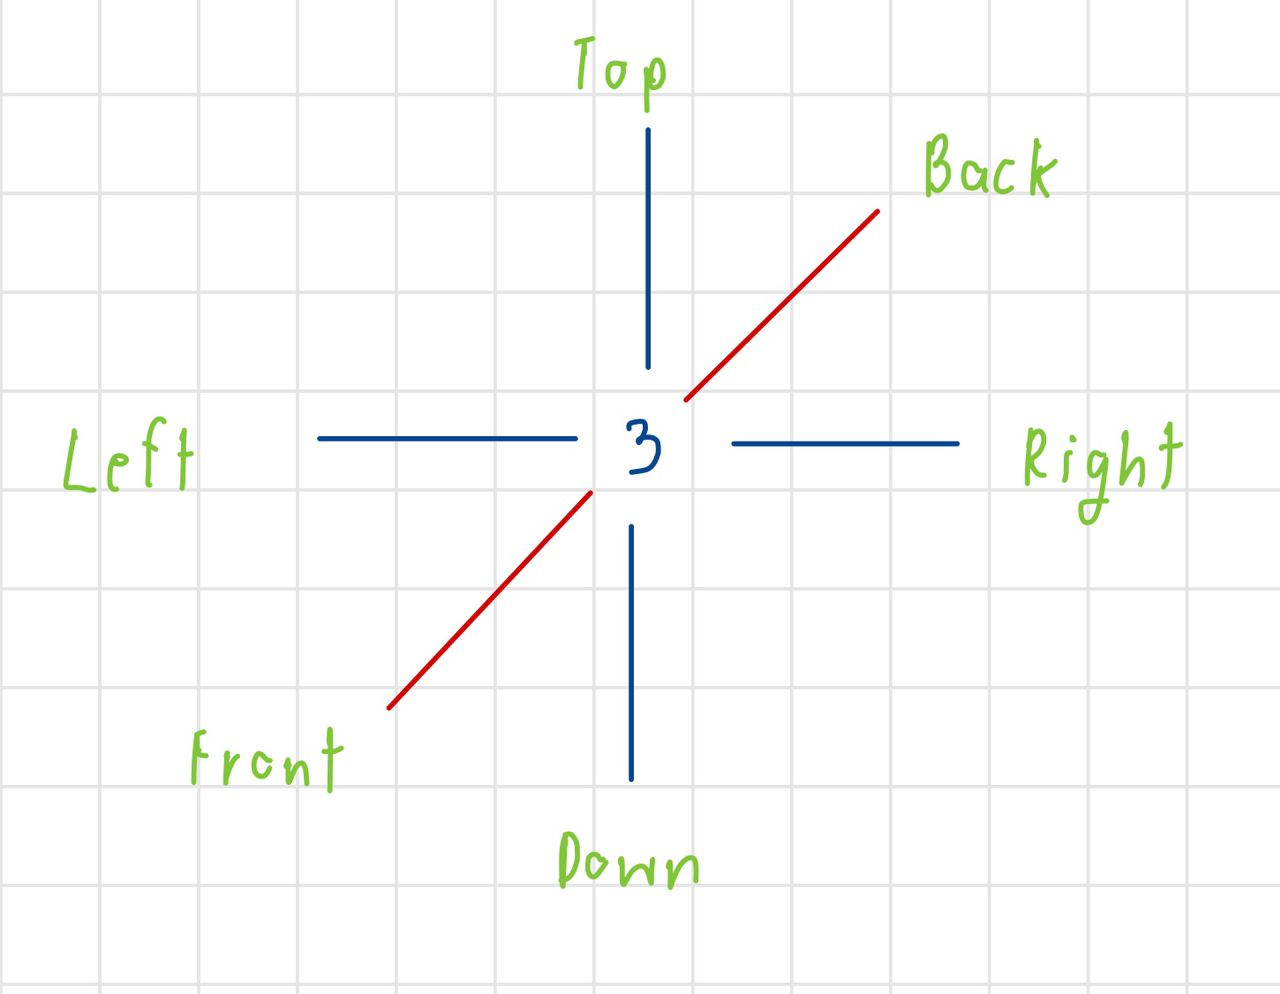 Top
Back
Left 3 Right
Front
Down